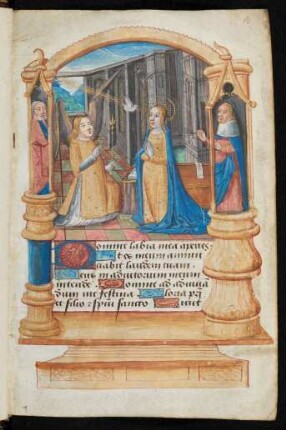 Domine labia mea aperies
et os meum annun
ciabit laudem tuam.
Deus in adiutorium meum
intende. Domine ad adiuva
dum me festina Gloria pri
et filio: et spiritui sancto Sicut